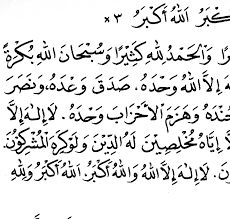 كْبَرُ اَللهُ أَكْبَرُ ×٣
رًا وَالْحَمْدُ لِلهِ كَثِيْرًا وَسُبْحَانَ اللهِ بُكْرَةً
هَ إِلَّا اللهُ وَحْدَهُ، صَدَقَ وَعْدَهُ، وَنَصَرَ
جُنْدَهُ وَهَزَمَ الْأَحْزَابَ وَحْدَهُ. لَا إِلٰهَ إِلَّا
لَّا إِيَّاهُ مُخْلِصِيْنَ لَهُ الدِّيْنَ وَلَوْ كَرِهَ الْمُشْرِكُوْنَ
نَ. لَا إِلٰهَ إِلَّا اللهُ وَاللهُ أَكْبَرُ اَللهُ أَكْبَرُ وَلِلهِ